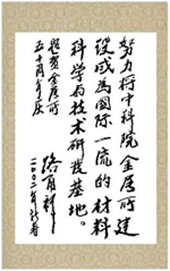 努力将中科院金属所建
设成为国际一流的材料
科学与技术研发基地。
祝贺金属所
五十周年庆
路甬祥
二〇〇二年新春